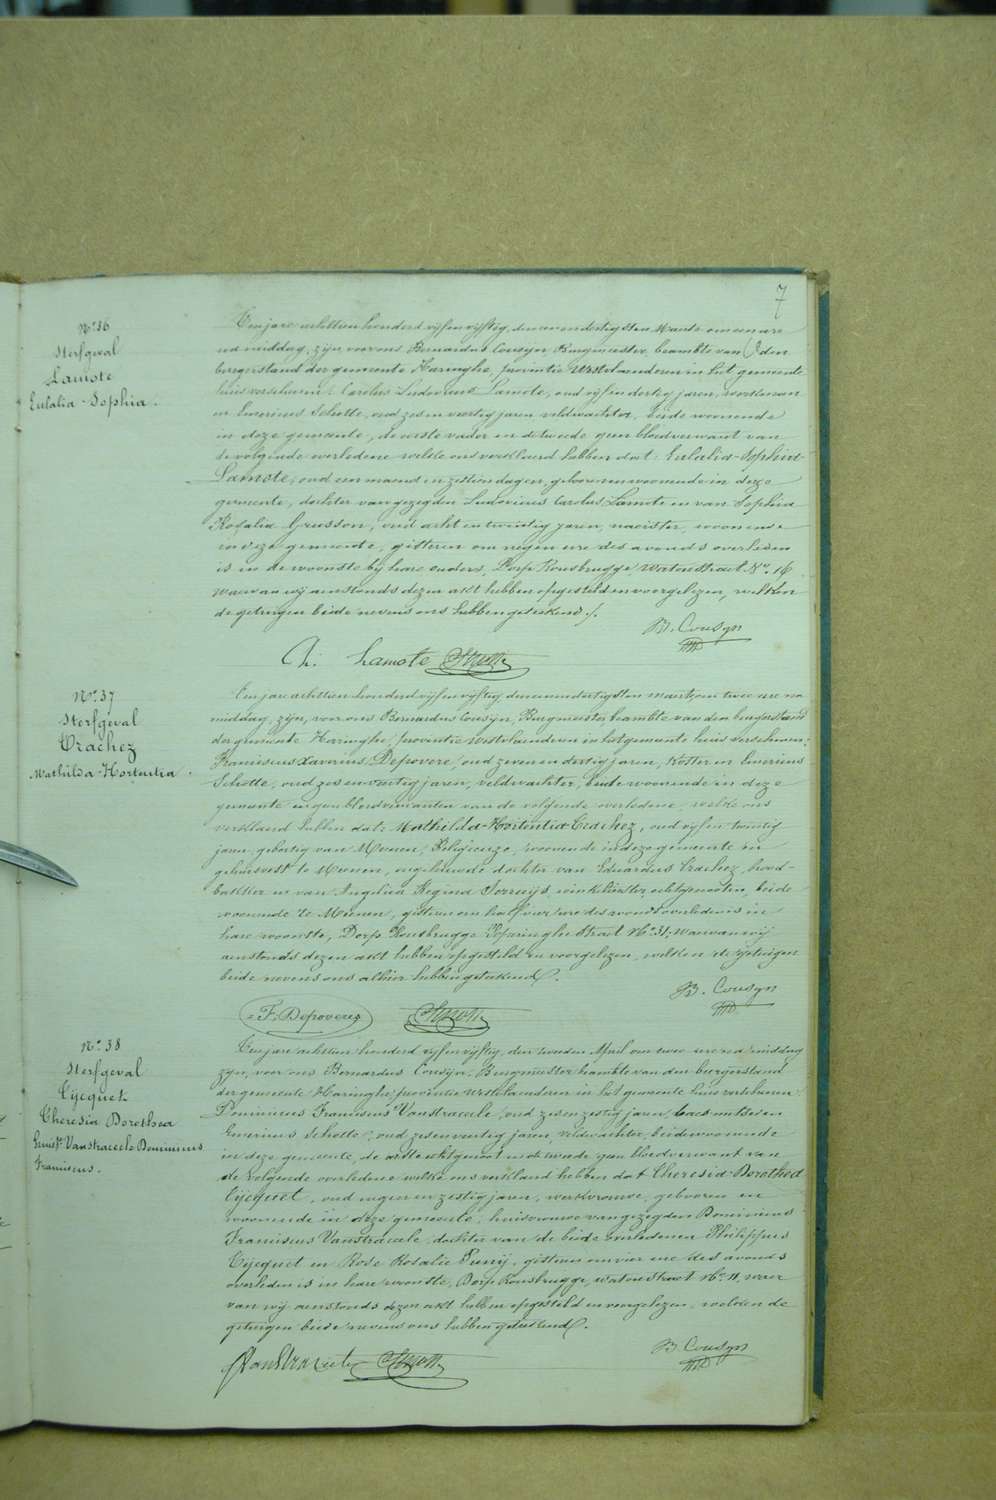 7
N.° 36
Sterfgeval
Lamote
Eulalia-Sophia.
Ten jare achttien honderd vijf en vijftig, den een en dertigsten Maarte om een ure
na middag, zijn, voor ons Bernardus Cousyn Burgmeester, beambte van den
burgerstand der gemeente Haringhe, provintie Westvlaenderen in het gemeente
huis verschenen: Carolus Ludovicus Lamote, oud vijf en dertig jaren, werkman
en Severinus Scholte, oud zes en veertig jaren veldwachter, beide woonende
in deze gemeente, de eerste vader en de tweede geen bloedverwant van
de volgende overledene welke ons verklaerd hebben dat: Eulalia-Sophia
Lamote, oud een maend en zestien dagen, geboren en woonende in deze
gemeente, dochter van gezegden Ludovicus Carolus Lamote en van Sophia
Rosalia Grusson, oud acht en twintig jaren, naeister, woonende
in deze gemeente, gisteren om negen ure des avonds overleden
is in de woonste by hare ouders, Dorp Rousbrugge Watoustraet N.° 16
waer van wij aenstonds dezen akt hebben opgesteld en voorgelezen, welken
de getuigen beide nevens ons hebben geteekend ./.
B. Cousyn
Lamote
N.° 37
Sterfgeval
Crachez
Mathilda-Hortentia.
Ten jare achttien honderd vijf en vijftig, den een en dertigsten maart, om twee ure na
middag, zijn, voor ons Bernardus Cousyn, Burgmeester, beambte van den burgerstand
der gemeente Haringhe, provintie Westvlaenderen in het gemeente huis verschenen:
Franciscus Xaverius Depovere, oud zeven en dertig jaren, koster en Severinus
Scholte, oud zes en veertig jaren, veldwachter, beide woonende in deze
gemeente en geen bloedverwanten van de volgende overledene, welke ons
verklaerd hebben dat: Mathilda-Hortentia Crachez, oud vijf en twintig
jaren, gebortig van Meenen, Religieuze, woonende in deze gemeente en
gehuisvest te Meenen, ongehuwde dochter van Eduardus Crachez, brood-
bakker en van Angelica Regina winkelierster, echtgenooten, beide
woonende te Meenen, gisteren om half vier ure des avonds overleden is in
hare woonste, Dorp Rousbrugge Haringhe Straet N.° 31, waervan wij
aenstonds dezen akt hebben opgesteld en voorgelezen, welken de getuigen
beide nevens ons alhier hebben geteekend.
B. Cousyn
F. Depovere
N.° 38
Sterfgeval
Cijcquet
Theresia Dorothea
huisv. Vanstraceele Dominicus
Franciscus.
Ten jare achttien honderd vijf en vijftig, den tweeden April om twee ure na middag
zijn, voor ons Bernardus Cousyn, Burgmeester beambte van den burgerstand
der gemeente Haringhe, provintie Westvlaenderen in het gemeente huis verschenen:
Dominicus Franciscus Vanstraceele, oud zes en zestig jaren,
Severinus Scholte, oud zes en veertig jaren, veldwachter, beide woonende
in deze gemeente, de eerste echtgenoot en de tweede geen bloedverwant van
de volgende overledene welke ons verklaerd hebben dat Theresia-Dorothea
Cijcquet, oud negen en zestig jaren, werkvrouwe, geboren en
woonende in deze gemeente, huisvrouwe van gezegden Dominicus
Franciscus Vanstraceele, dochter van de beide overledenen Philippus
Cijcquet en Rose Rosalie gisteren om vier ure des avonds
overleden is in hare woonste, Dorp Rousbrugge, Watoustraet N.° 11, waer
van wij aenstonds dezen akt hebben opgesteld en voorgelezen, welken de
getuigen beide nevens ons hebben geteekend.
B. Cousyn